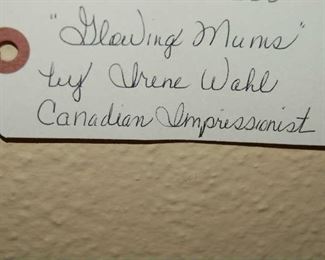 "Glowing Mums"
by Irene Wahl
Canadian Impressionist